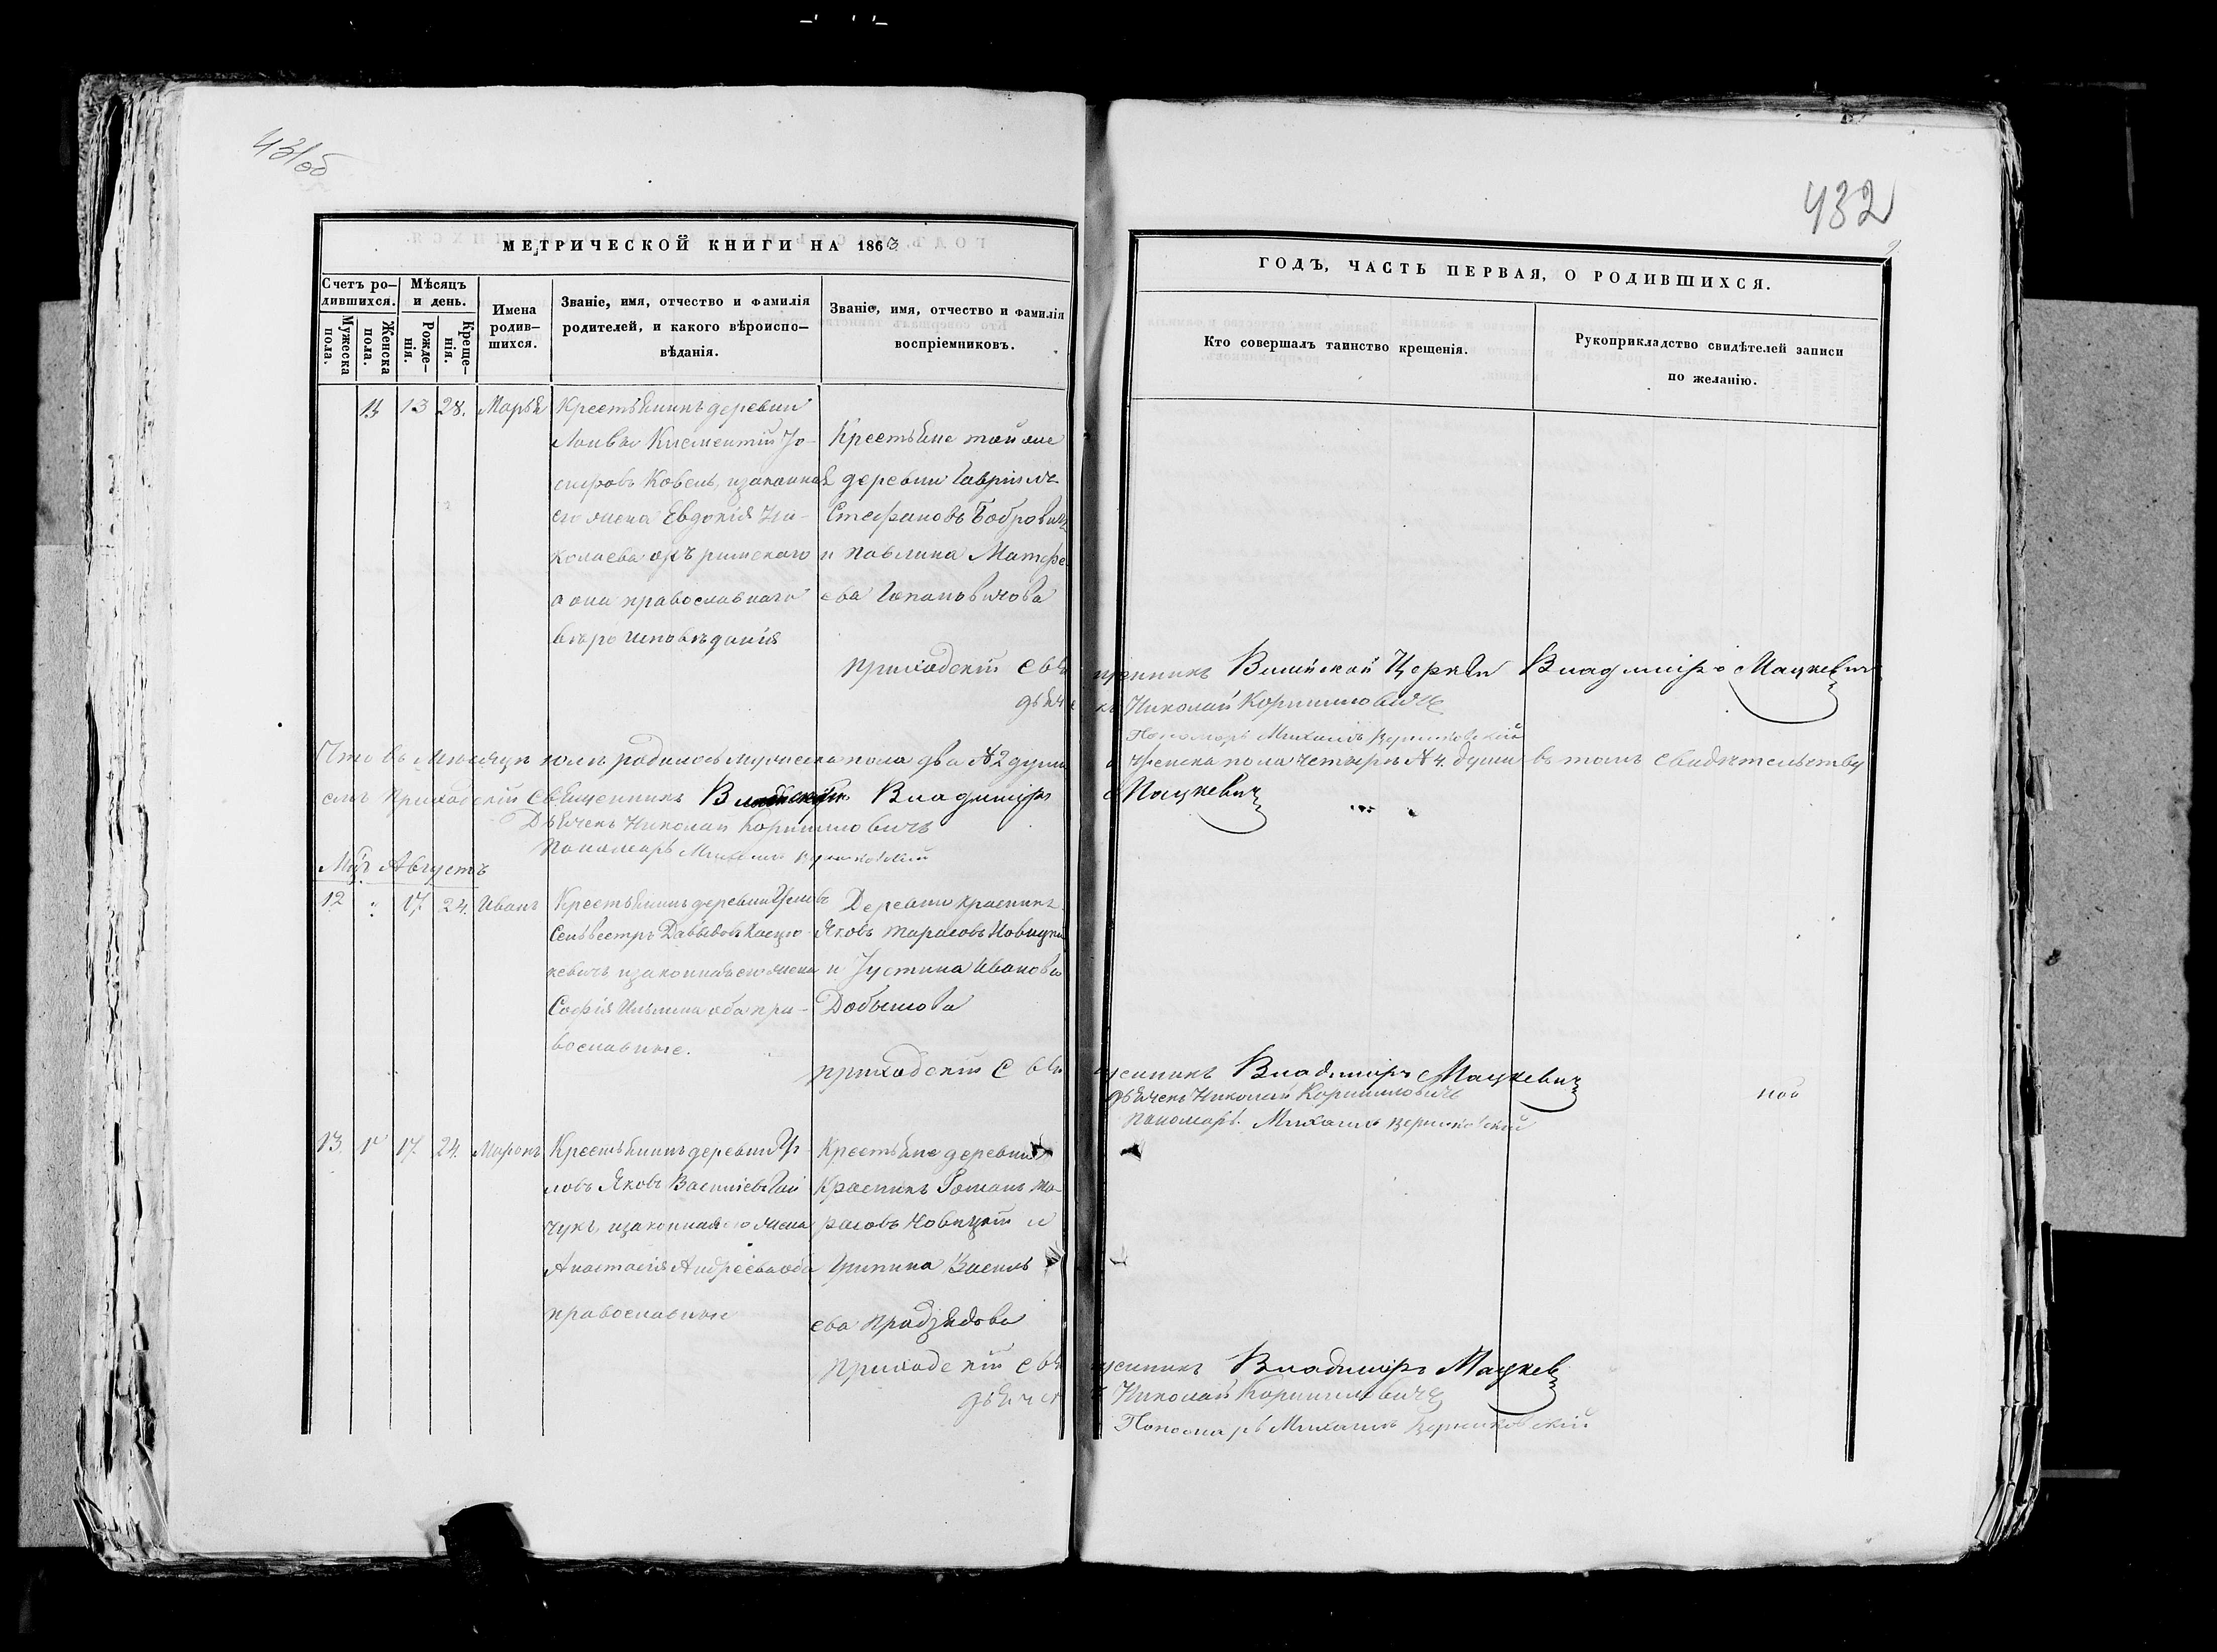 431об
432
МЕТРИЧЕСКОЙ КНИГИ НА 1863
ГОДЪ, ЧАСТЬ ПЕРВАЯ, О РОДИВШИХСЯ.
Счетъ ро-
дившихся.
Мужеска
пола.
Женска
пола.
Мѣсяцъ
и день.
Рожде-
нія.
Креще-
нія.
Имена
родив-
шихся.
Званіе, имя, отчество и фамилія
родителей, и какого вѣроиспо-
вѣданія.
Званіе, имя, отчество и фамилія
воспріемниковъ.
Кто совершалъ таинство крещенія.
Рукоприкладство свидѣтелей записи
по желанію.
13 28. Марья Крестьянинъ деревни
Климентій Іо-
сифовъ Ковель, и законная
его жена Евдокія Ни-
колаева онъ римскаго
а она православнаго
вѣроисповѣданія
Крестьяне той же
деревни Гавріилъ
Стефановъ Бобровичъ
и Павлина Матфе-
ева
Приходскій Священникъ Вилійской Церкви Владиміръ Мацкевичъ
дьячекъ Николай
Пономарь Михаилъ
Что въ Мѣсяцѣ Юлѣ родилось мужеска пола два № 2 души и женска пола четыре № 4. души въ томъ свидѣтельству
емъ Приходскій Священникъ Владиміръ Мацкевичъ
Дьячекъ Николай
Пономарь Михаилъ
Мцъ Августъ
12 " 17 24. Иванъ Крестьянинъ деревни
Сельвестръ Давыдовъ
кевичъ и законная его жена
Софія Ильина оба пра-
вославные.
Деревни Краспикъ
Яковъ Тарасовъ Новицкій
и Іустина Иванова
Добышова
Приходскій Священникъ Владиміръ Мацкевичъ
дьячекъ Николай
Пономарь Михаилъ
13 17. 24. Миронъ Крестьянинъ деревни
ловъ Яковъ Василіевъ Гай
чукъ, и законная его жена
Анастасія Андреева оба
православные
Крестьяне деревни
Краспикъ Романъ Та-
расовъ Новицкій и
Василь
ева
Приходскій Священникъ Владиміръ Мацкев
дьячекъ Николай
Пономарь Михаилъ